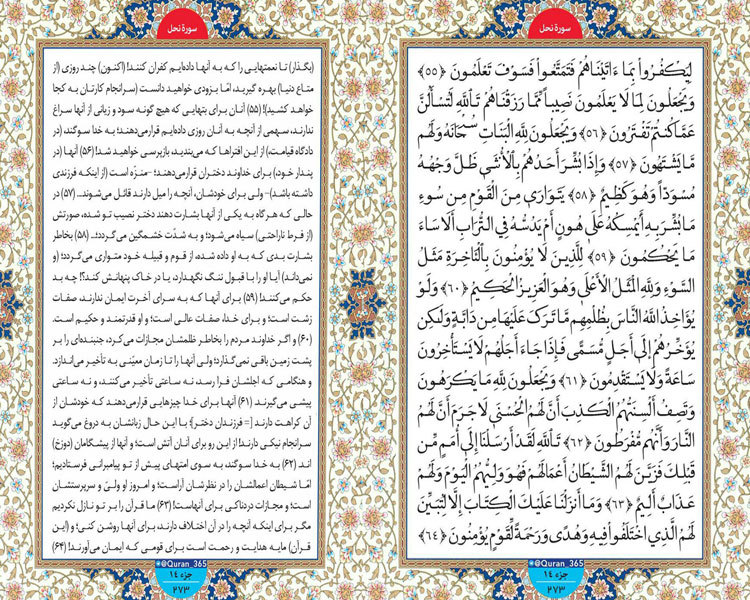 سورة نحل
لِيَكْفُرُوا بِمَا ءَاتَيْنَاهُمْ فَتَمَتَّعُوا فَسَوْفَ تَعْلَمُونَ ﴿۵۵﴾
وَيَجْعَلُونَ لِمَا لَا يَعْلَمُونَ نَصِيباً مِّمَّا رَزَقْنَاهُمْ تَاللَّهِ لَتُسْأَلُنَّ
عَمَّا كُنتُمْ تَفْتَرُونَ ﴿۵۶﴾ وَيَجْعَلُونَ لِلَّهِ الْبَنَاتِ سُبْحَانَهُ وَلَهُم
مَّا يَشْتَهُونَ ﴿۵۷﴾ وَإِذَا بُشِّرَ أَحَدُهُم بِالْأُنثَى ظَلَّ وَجْهُهُ
مُسْوَدّاً وَهُوَ كَظِيمٌ ﴿۵۸﴾ يَتَوَارَى مِنَ الْقَوْمِ مِن سُوءِ
مَا بُشِّرَ بِهِ أَيُمْسِكُهُ عَلَى هُونٍ أَمْ يَدُسُّهُ فِي التُّرَابِ أَلَا سَاءَ
مَا يَحْكُمُونَ ﴿۵۹﴾ لِلَّذِينَ لَا يُؤْمِنُونَ بِالْآخِرَةِ مَثَلُ
السَّوْءِ وَلِلَّهِ الْمَثَلُ الْأَعْلَى وَهُوَ الْعَزِيزُ الْحَكِيمُ ﴿۶۰﴾ وَلَوْ
يُؤَاخِذُ اللَّهُ النَّاسَ بِظُلْمِهِم مَّا تَرَكَ عَلَيْهَا مِن دَابَّةٍ وَلَكِن
يُؤَخِّرُهُمْ إِلَى أَجَلٍ مُّسَمًّى فَإِذَا جَاءَ أَجَلُهُمْ لَا يَسْتَأْخِرُونَ
سَاعَةً وَلَا يَسْتَقْدِمُونَ ﴿۶۱﴾ وَيَجْعَلُونَ لِلَّهِ مَا يَكْرَهُونَ
وَتَصِفُ أَلْسِنَتُهُمُ الْكَذِبَ أَنَّ لَهُمُ الْحُسْنَى لَا جَرَمَ أَنَّ لَهُمُ
النَّارَ وَأَنَّهُم مُّفْرَطُونَ ﴿۶۲﴾ تَاللَّهِ لَقَدْ أَرْسَلْنَا إِلَى أُمَمٍ مِّن
قَبْلِكَ فَزَيَّنَ لَهُمُ الشَّيْطَانُ أَعْمَالَهُمْ فَهُوَ وَلِيُّهُمُ الْيَوْمَ وَلَهُمْ
عَذَابٌ أَلِيمٌ ﴿۶۳﴾ وَمَا أَنزَلْنَا عَلَيْكَ الْكِتَابَ إِلَّا لِتُبَيِّنَ
لَهُمُ الَّذِي اخْتَلَفُوا فِيهِ وَهُدًى وَرَحْمَةً لِّقَوْمٍ يُؤْمِنُونَ ﴿۶۴﴾
@Quran_365
جزء ۱۴
۲۷۳
سورة نحل
(بگذار) تا نعمتهایی را که به آنها داده‌ایم کفران کنند! (اکنون) چند روزی (از
متاع دنیا) بهره گیرید، امّا بزودی خواهید دانست (سرانجام کارتان به کجا
خواهد کشید)! (۵۵) آنان برای بتهایی که هیچ گونه سود و زیانی از آنها سراغ
ندارند، سهمی از آنچه به آنان روزی داده‌ایم قرارمی‌دهند؛ به خدا سوگند، (در
دادگاه قیامت،) از این افتراها که می‌بندید، بازپرسی خواهید شد! (۵۶) آنها (در
پندار خود،) برای خداوند دختران قرارمی‌دهند؛ -منزّه است (از اینکه فرزندی
داشته باشد)- ولی برای خودشان، آنچه را میل دارند قائل می‌شوند... (۵۷) در
حالی که هرگاه به یکی از آنها بشارت دهند دختر نصیب تو شده، صورتش
(از فرط ناراحتی) سیاه می‌شود؛ و به شدّت خشمگین می‌گردد؛... (۵۸) بخاطر
بشارت بدی که به او داده شده، از قوم و قبیله خود متواری می‌گردد؛ (و
نمی‌داند) آیا او را با قبول ننگ نگهدارد، یا در خاک پنهانش کند؟! چه بد
حکم می‌کنند! (۵۹) برای آنها که به سرای آخرت ایمان ندارند، صفات
زشت است؛ و برای خدا، صفات عالی است؛ و او قدرتمند و حکیم است.
(۶۰) و اگر خداوند مردم را بخاطر ظلمشان مجازات می‌کرد، جنبنده‌ای را بر
پشت زمین باقی نمی‌گذارد؛ ولی آنها را تا زمان معیّنی به تأخیر می‌اندازد.
و هنگامی که اجلشان فرا رسد، نه ساعتی تأخیر می‌کنند، و نه ساعتی
پیشی می‌گیرند. (۶۱) آنها برای خدا چیزهایی قرارمی‌دهند که خودشان از
آن کراهت دارند [= فرزندان دختر]؛ با این حال زبانشان به دروغ می‌گوید
سرانجام نیکی دارند! از این رو برای آنان آتش است؛ و آنها از پیشگامان (دوزخ)
اند. (۶۲) به خدا سوگند، به سوی امتهای پیش از تو پیامبرانی فرستادیم؛
امّا شیطان اعمالشان را در نظرشان آراست؛ و امروز او ولیّ و سرپرستشان
است؛ و مجازات دردناکی برای آنهاست! (۶۳) ما قرآن را بر تو نازل نکردیم
مگر برای اینکه آنچه را در آن اختلاف دارند، برای آنها روشن کنی؛ و (این
قرآن) مایه هدایت و رحمت است برای قومی که ایمان می‌آورند! (۶۴)
@Quran_365
جزء ۱۴
۲۷۳